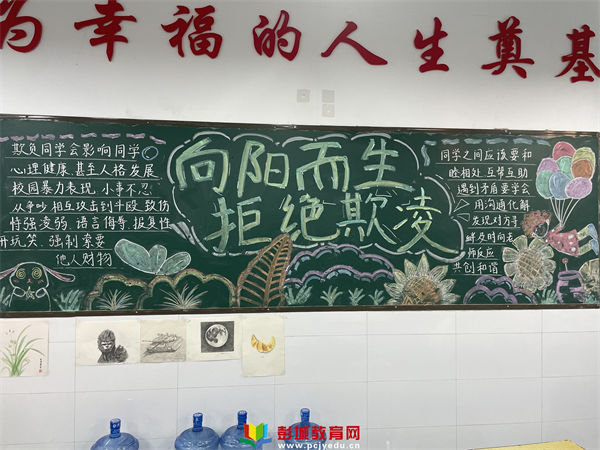 为幸福的人生奠基
向阳而生
拒绝欺凌
欺负同学会影响同学
心理健康,甚至人格发展
校园暴力表现,小事不忍
从争吵相互攻击到斗殴致伤
恃强凌弱、语言侮辱、报复性
开玩笑、强制索要
他人财物
同学之间应该要和
睦相处,互帮互助
遇到矛盾要学会
用沟通化解
发现对方号
时向老
师反应
共创和谐
彭城教育网
www.pcjyedu.cn